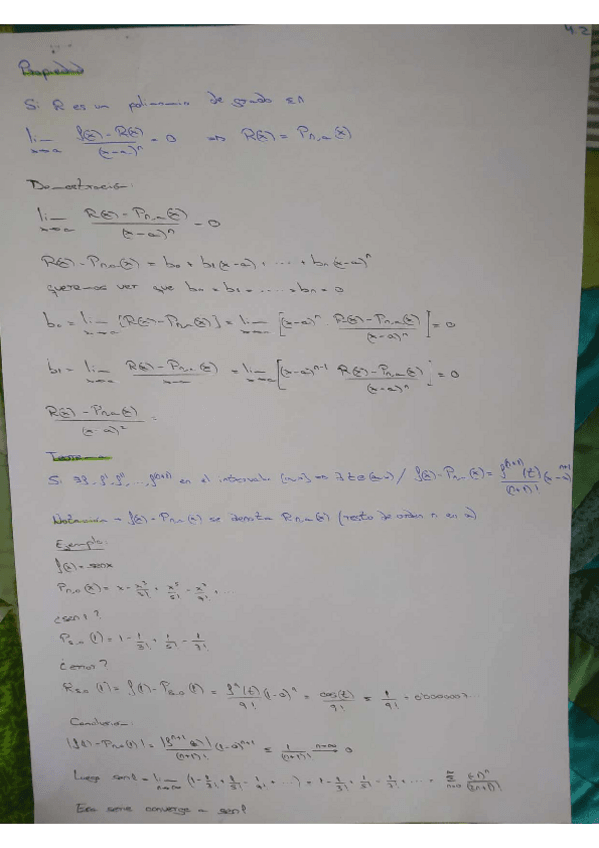 4.2
Propiedad
Si R es un polinomio de grado ≤n
lim x→a (f(x) - R(x))/(x-a)^n = 0 ⇒ R(x) = P_{n,a}(x)
Demostración:
lim x→a (R(x) - P_{n,a}(x))/(x-a)^n = 0
R(x) - P_{n,a}(x) = b_0 + b_1(x-a) + ... + b_n(x-a)^n
queremos ver que b_0 = b_1 = ..... = b_n = 0
b_0 = lim x→a [R(x) - P_{n,a}(x)] = lim x→a [(x-a)^n · (R(x) - P_{n,a}(x))/(x-a)^n] = 0
b_1 = lim x→a (R(x) - P_{n,a}(x))/(x-a) = lim x→a [(x-a)^{n-1} (R(x) - P_{n,a}(x))/(x-a)^n] = 0
(R(x) - P_{n,a}(x))/(x-a)^2 =
Teorema
Si ∃ f, f', f'', ..., f^{(n+1)} en el intervalo ⇒ ∃ t ∈ (a,x) / f(x) - P_{n,a}(x) = f^{(n+1)}(t)/(n+1)! (x-a)^{n+1}
Notación - f(x) - P_{n,a}(x) se denota R_{n,a}(x) (resto de orden n en a)
Ejemplo:
f(x) = senx
P_{n,0}(x) = x - x^3/3! + x^5/5! - x^7/7! + ...
¿sen1?
P_{8,0}(1) = 1 - 1/3! + 1/5! - 1/7!
¿error?
R_{8,0}(1) = f(1) - P_{8,0}(1) = (1-0)^9 = cos(t)/9! ≤ 1/9! = 0'0000007...
Conclusión:
|f(1) - P_{n,0}(1)| = |f^{n+1}(t)|/(n+1)! (1-0)^{n+1} ≤ 1/(n+1)! n→∞ → 0
Luego sen1 = lim n→∞ (1 - 1/3! + 1/5! - + ...) = 1 - 1/3! + 1/5! - + ... = ∑ n=0 ∞ (-1)^n/(2n+1)!
Esa serie converge a sen1